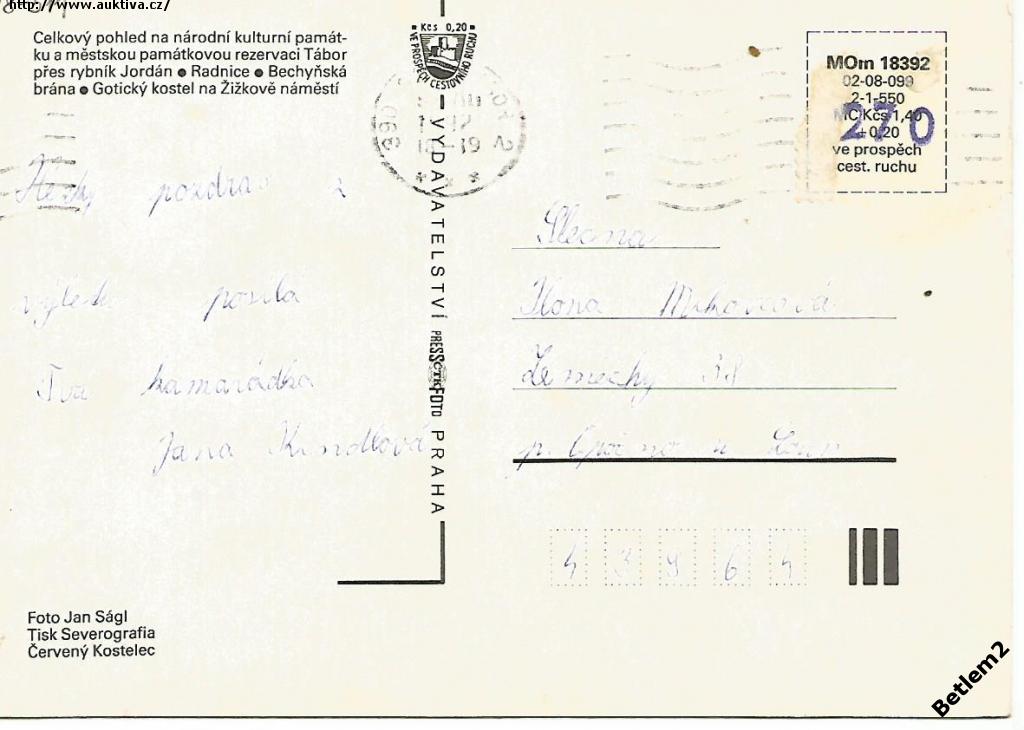 http://www.auktiva.cz/
Celkový pohled na národní kulturní památ-
ku a městskou památkovou rezervaci Tábor
přes rybník Jordán • Radnice • Bechyňská
brána • Gotický kostel na Žižkově náměstí
Kčs 0,20
VE PROSPĚCH CESTOVNÍHO RUCHU
MOm 18392
02-08-099
2-1-550
MC Kčs 1,40
+0,20
ve prospěch
cest. ruchu
270
Hezký pozdrav z
výletu posílá
Tva kamarádka
Jana Kindlová
VYDAVATELSTVÍ PRESSFOTO PRAHA
ČTK
Slečna
Ilona
Zemechy 38
p.
4 3 9 6 4
Foto Jan Ságl
Tisk Severografia
Červený Kostelec
Betlem2